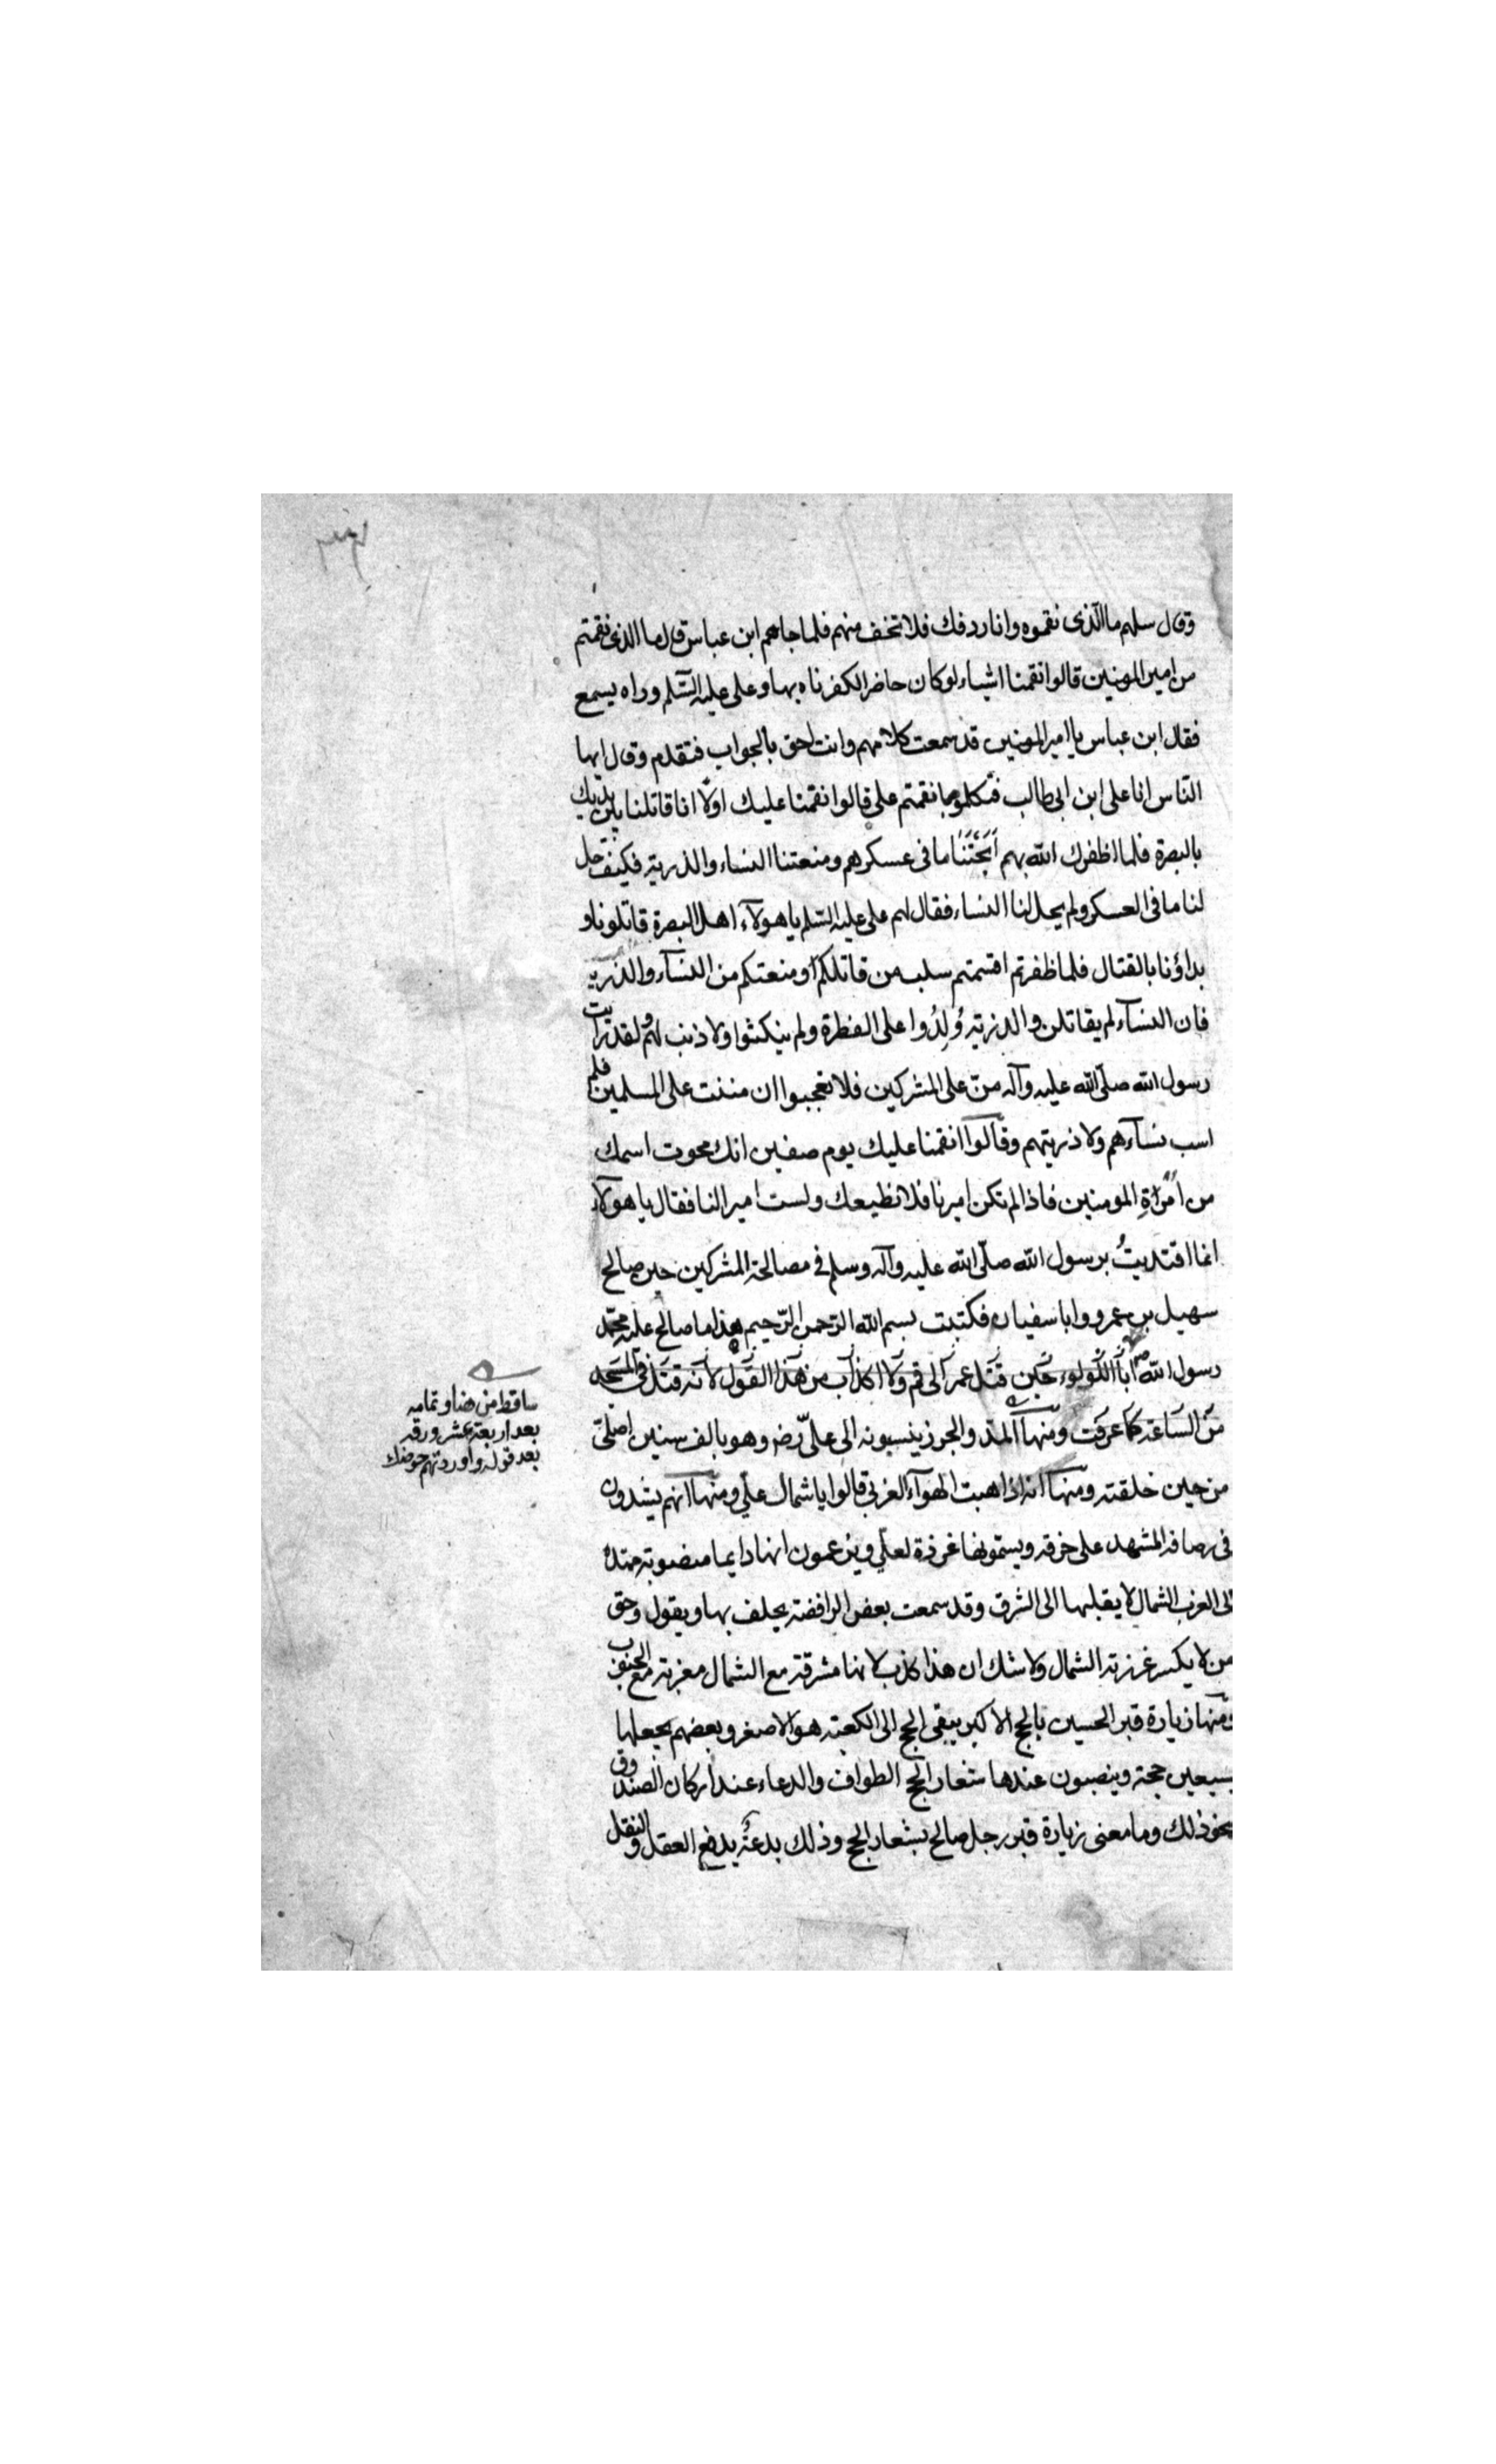 وقال سلهم ما الذى نقموه وانا ردفك فلا تخف منهم فلما جاهم ابن عباس قال ما الذى نقمتم
من امير المومنين قالوا نقمنا اشياء لو كان حاضرا لكفرناه بها وعلى عليه السلم وراه يسمع
فقال ابن عباس يا امير المومنين قد سمعت كلامهم وانت احق بالجواب فتقدم وقال ايها
النّاس انا على ابن ابى طالب فتكلموا بما نقمتم على قالوا نقمنا عليك اولًا انا قاتلنا بين يديك
بالبصرة فلما اظفرك الله بهم اَبَحْتَنَا ما فى عسكرهم ومنعتنا النساء والذرية فكيف حل
لنا ما فى العسكر ولم يحل لنا النساء فقال لهم على عليه السّلم يا هولآء اهل البصرة قاتلونا و
بداؤنا بالقتال فلما ظفرتم اقتسمتم سلب من قاتلكم ومنعتكم من النسآء والذرية
فان النسآء لم يقاتلن والذرية وُلِدُوا على الفطرة ولم ينكثوا ولا ذنب لهم ولقد رايت
رسول الله صلّى الله عليه وآله منّ على المشركين فلا تعجبوا ان مننت على المسلمين فلم
اسب نسآءهم ولا ذريتهم وقالوا نقمنا عليك يوم صفين انك محوت اسمك
من امْرَاةِ المومنين فاذا لم تكن اميرنا فلا نطيعك ولست اميرا لنا فقال يا هولآء
انما اقتديتُ برسول الله صلّى الله عليه وآله وسلم فى مصالحة المشركين حين صالح
سهيل بن عمرو وابا سفيان فكتبت بسم الله الرّحمن الرّحيم هذا ما صالح عليه محمّد
رسول الله ابا اللولوء حين قتل عمر الى قم ولا اكذب من هذا القول لانه قتل فى المسجد
من الساعة كما عرفت ومنها المدّ والجزر ينسبونه الى علىّ رض وهو بالف سنين اصلىّ
من حين خلقته ومنها انه اذا هبت الهوآء الغربى قالوا يا شمال علي ومنها انهم يشدون
فى رصافة المشهد على خرقه ويسمونها غرزة لعلي ويزعمون انها دايما منصوبة ممتدة
الى الغرب الشمال لا يقلبها الى الشرق وقد سمعت بعض الرافضة يحلف بها ويقول وحق
من لا يكسر غرزته الشمال ولا شك ان هذا كذب لانها مشرقة مع الشمال مغربة مع الجنوب
ومنها زيارة قبر الحسين بالحج الاكبر يبقى الحج الى الكعبة هو الاصغر وبعضهم يجعلها
بسبعين حجة وينصبون عندها شعار الحج الطواف والدعاء عند اركان الصندوق
نحو ذلك وما معنى زيارة قبر رجل صالح بشعار الحج وذلك بدعة يدفع العقل والنقل
ساقط من هنا وتمامه
بعد اربعة عشر ورقه
بعد قوله واوردتهم حوضك